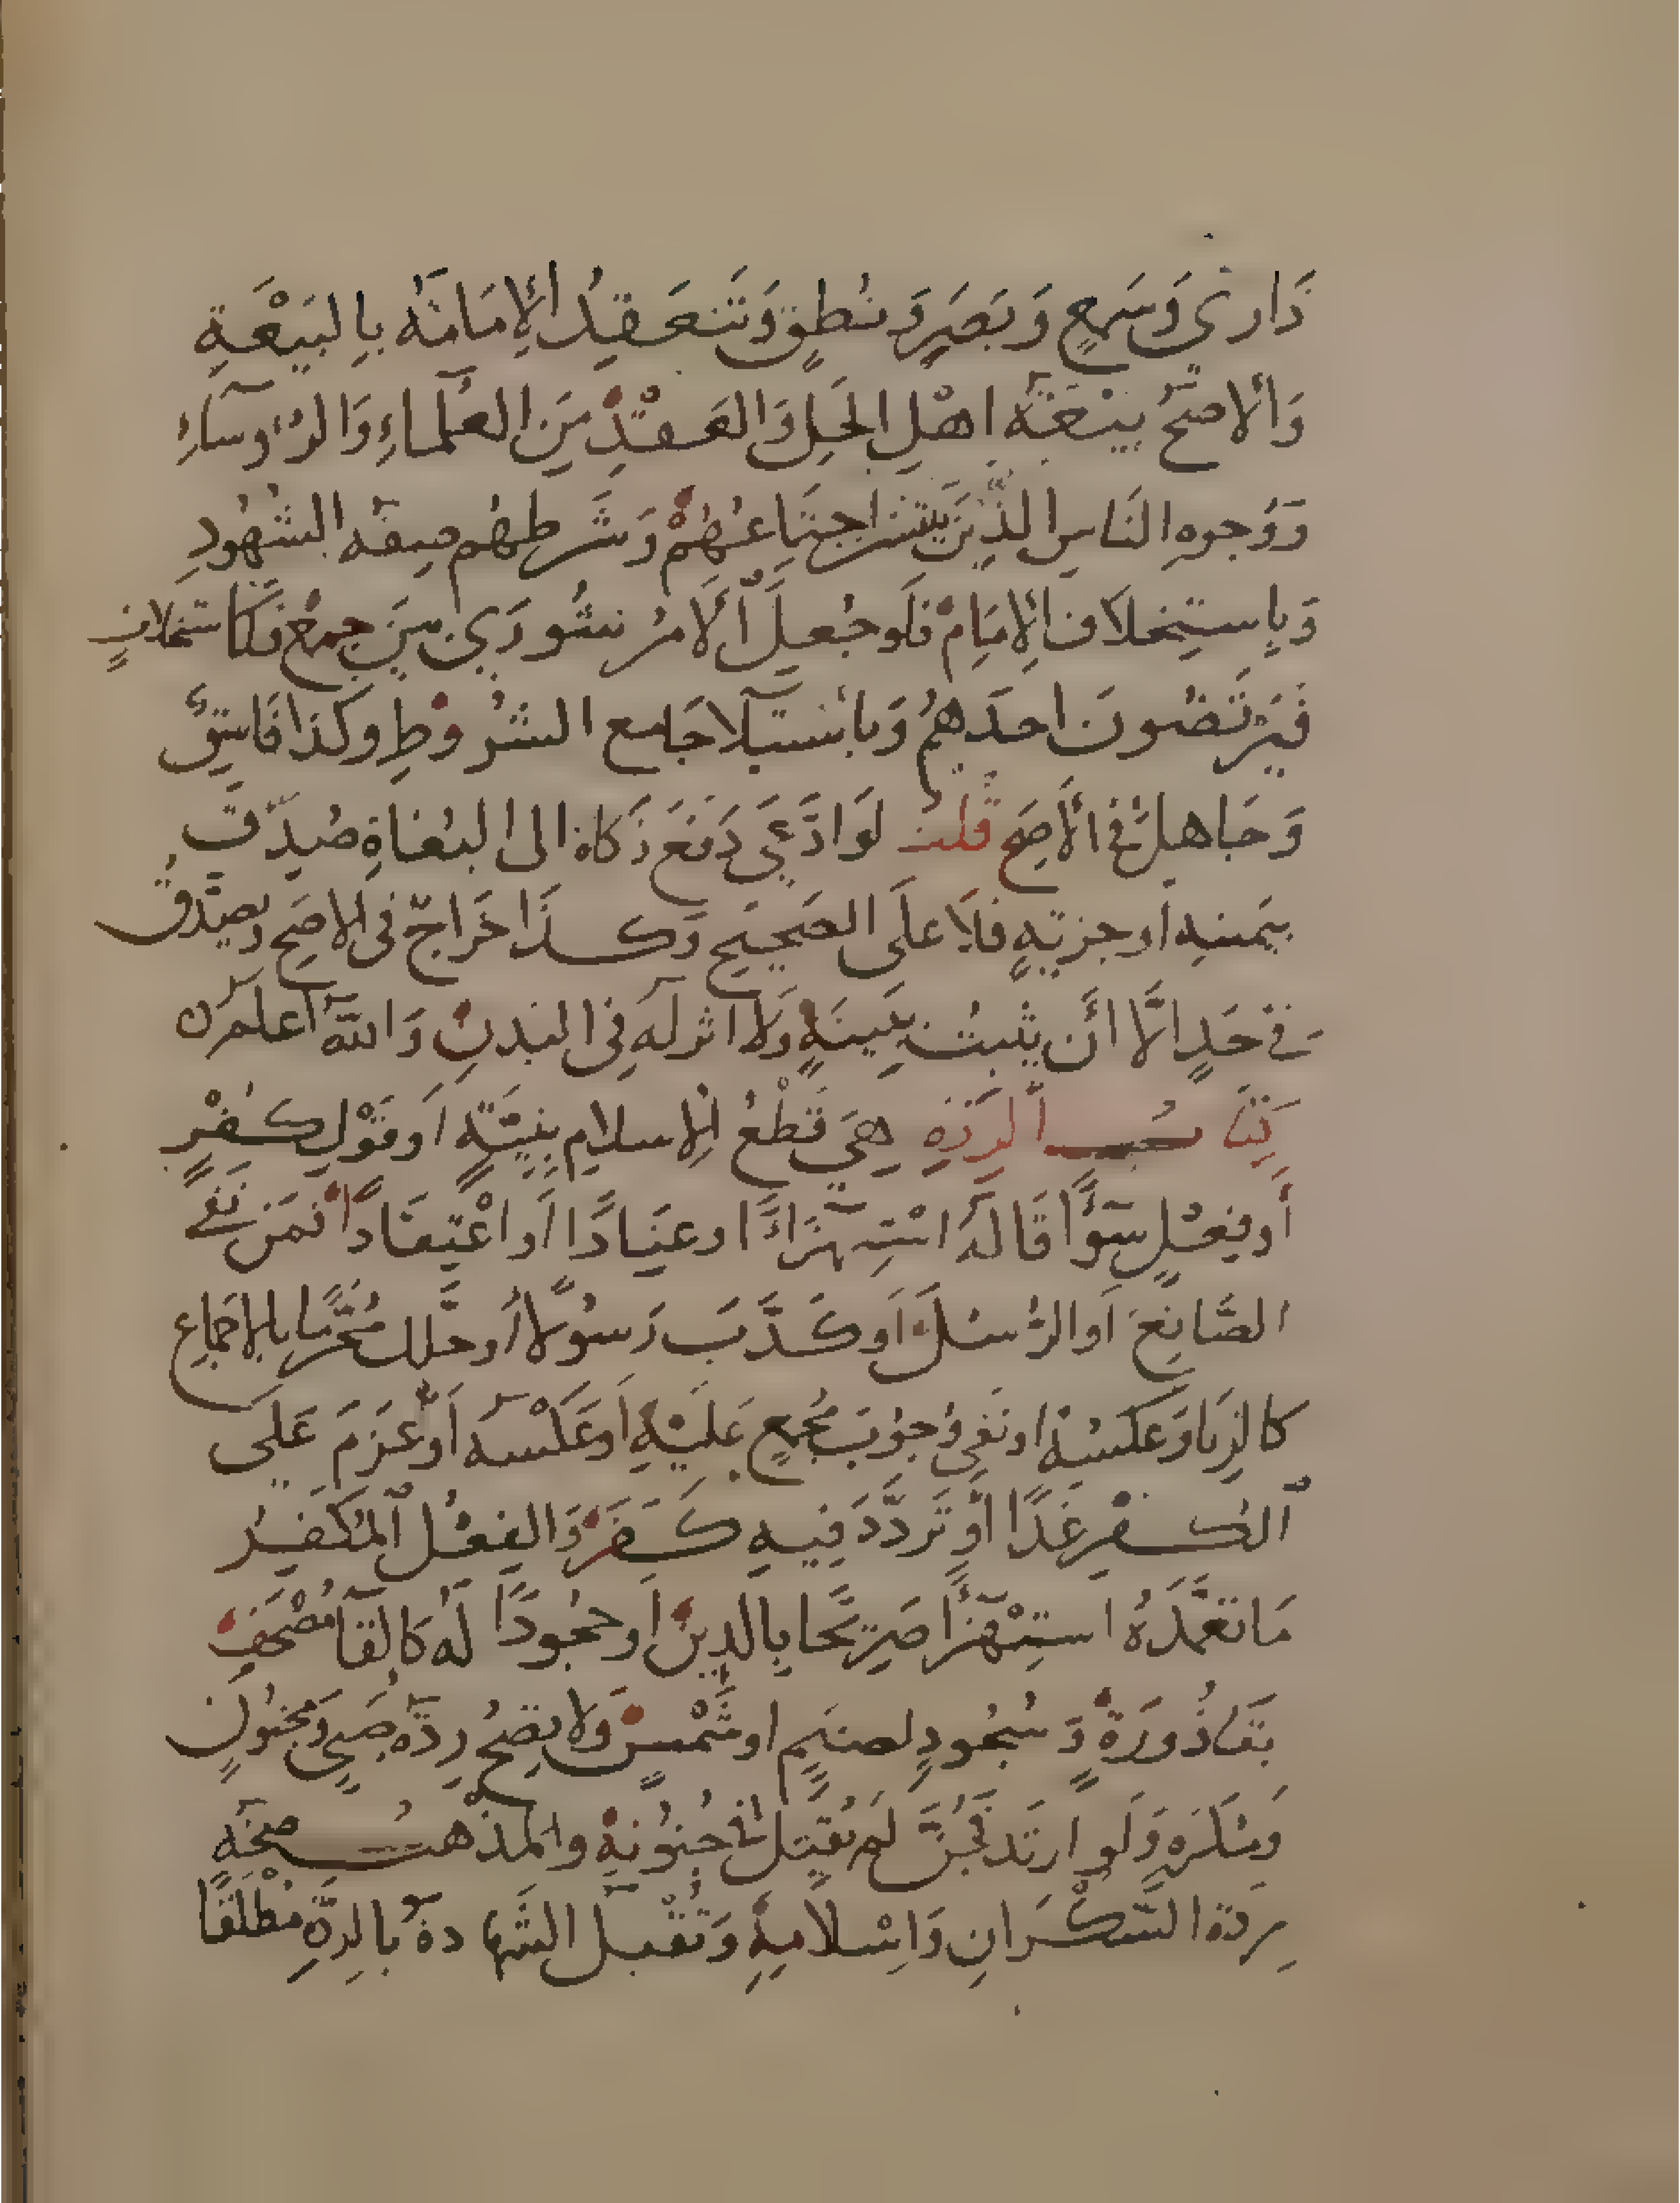 دَا رَايٍ وَسَمعٍ وَبَصَرٍ وَنُطقٍ وَتَنعَقِدُ الإِمَامَةُ بِالبَيْعَةِ
وَالاصَحُّ بَيْعَةُ اهْلِ الحَلِّ وَالعَقْدِ مِنَ العُلَمَاءِ وَالرُّوسَاءِ
وَوُجوهِ النَاسِ الذِّينَ يَتَيَسَّرُ اجتمَاعُهُمْ وَشَرطهُم صِفَة الشُهُودِ
وَبِاستِخلَافِ الإِمَامِ فَلَو جُعِلَ الَامرُ شُورَى بَينَ جمعٍ فَكَاستخلافٍ
فَيَرْتَضُونَ احَدَهُمْ وَباستيلَا جَامع الشرُوطِ وكَذَا فَاسِقٌ
وَجَاهِلٌ في الأَصَح قُلتُ لَوَ ادَّعَى دَفعَ زَكَاة الى البُغَاةِ صُدِّقَ
بِيَمينهِ أو جزيَةٍ فلَا علَى الصَحِيحِ وَكذَا خَرَاجٌ فى الاصَحِ وَيصَدَّقُ
فى حَدٍ الَّا أَن يثبُتُ بِبَيِنَةٍ وَلا اثر لَه فِى البَدنِ وَاللَّهُ أعلَمُ
كِتَابُ الرِدَّةِ هِىَ قَطْعُ الإِسلامِ بِنِيَّةٍ اَو قَوْلِ كُفْرٍ
أَو فِعْلٍ سَوَّأ قَالهُ اسْتِهْزَاءً او عنَادًا اَو اعْتِقَادًا فمَن نَفَى
الصَّانِعَ اَو الرُّسُلَ اَو كَذَّبَ رَسُولًا أَو حلَّل مُحَرَّمًا بالإجمَاعِ
كالزِنَا وَعَكسُهُ او نَفى وُجوُبَ مُجمَعٍ عَلَيْهِ اَو عَكْسَه اَو عَزَمَ عَلَى
الكُفْرِ غَدًا أَو تَرَدَّدَ فِيهِ كَفَرَ وَالفِعْلُ المُكَفِّرُ
مَا تَعَمَّدَهُ استِهْزأً صَرِيحًا بِالدِينِ اَو جُحُودًا لَهُ كَالقَآ مُصْحَفٍ
بقَاذُورَةٍ وَسُجُودٍ لصنَمٍ او شَمْسٍ وَلا يَصِحُ رِدَّة صَبِىٍ وَمجنُونٍ
وَمُكْرَهٍ وَلَو ارتَدَ فَجُنَّ لَم يُقْتَل فى جنُونهِ والمَذْهبُ صِحَّةُ
رِدَة السَّكْرَانِ وَاِسْلَامِهِ وَتُقْبل الشَهادة بالرِدَّةِ مُطْلَقًا